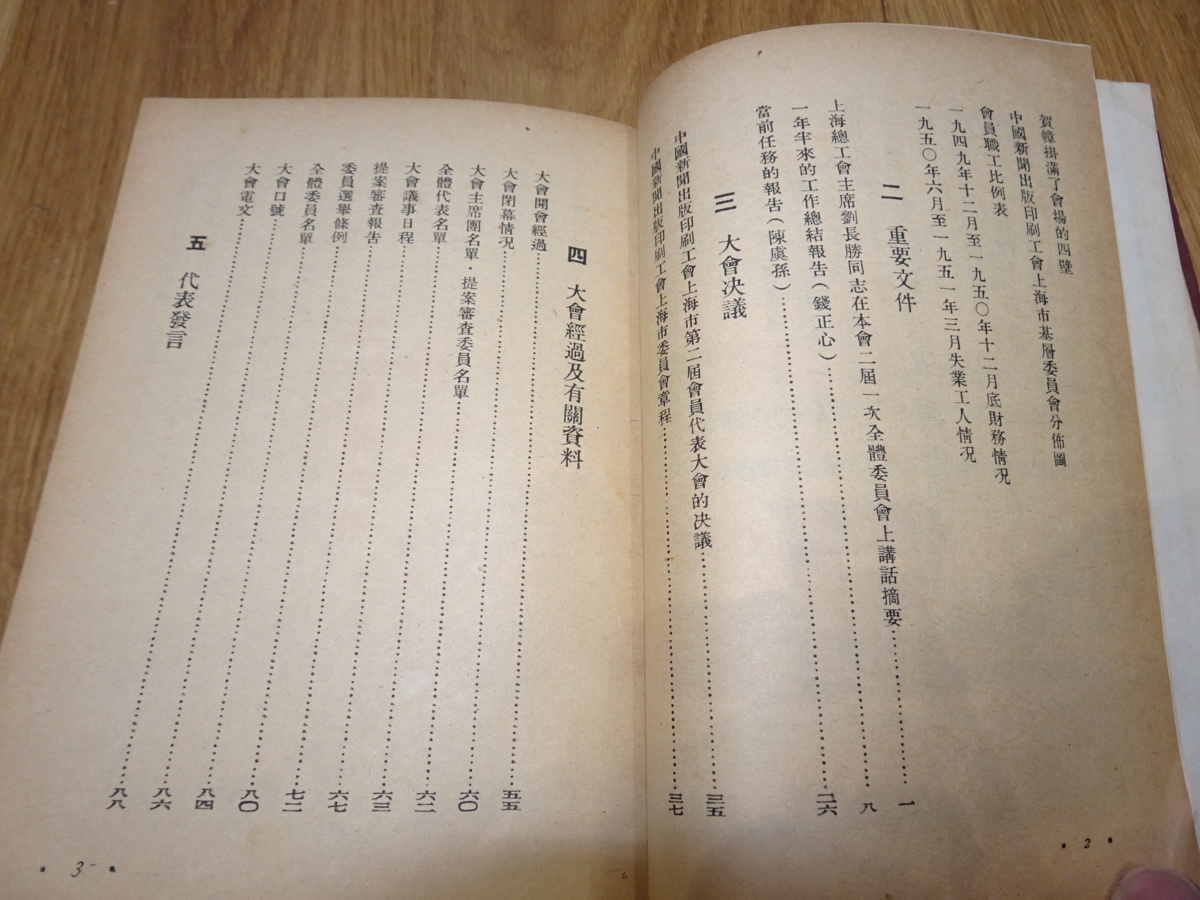 賀幛掛滿了會場的四壁
中國新聞出版印刷工會上海市基層委員會分佈圖
會員職工比例表
一九四九年十二月至一九五〇年十二月底財務情况
一九五〇年六月至一九五一年三月失業工人情况
二 重要文件
上海總工會主席劉長勝同志在本會二屆一次全體委員會上講話摘要……一
一年半來的工作總結報告(錢正心)……八
當前任務的報告(陳虞孫)……二六
三 大會决議
中國新聞出版印刷工會上海市第二屆會員代表大會的决議……三五
中國新聞出版印刷工會上海市委員會章程……三七
• 2 •
四 大會經過及有關資料
大會開會經過……五五
大會閉幕情况……六〇
大會主席團名單·提案審查委員名單……六二
全體代表名單……六三
大會議事日程……六七
提案審查報告……七二
委員選舉條例……八〇
全體委員名單……八四
大會口號……八六
大會電文……八八
五 代表發言
• 3 •